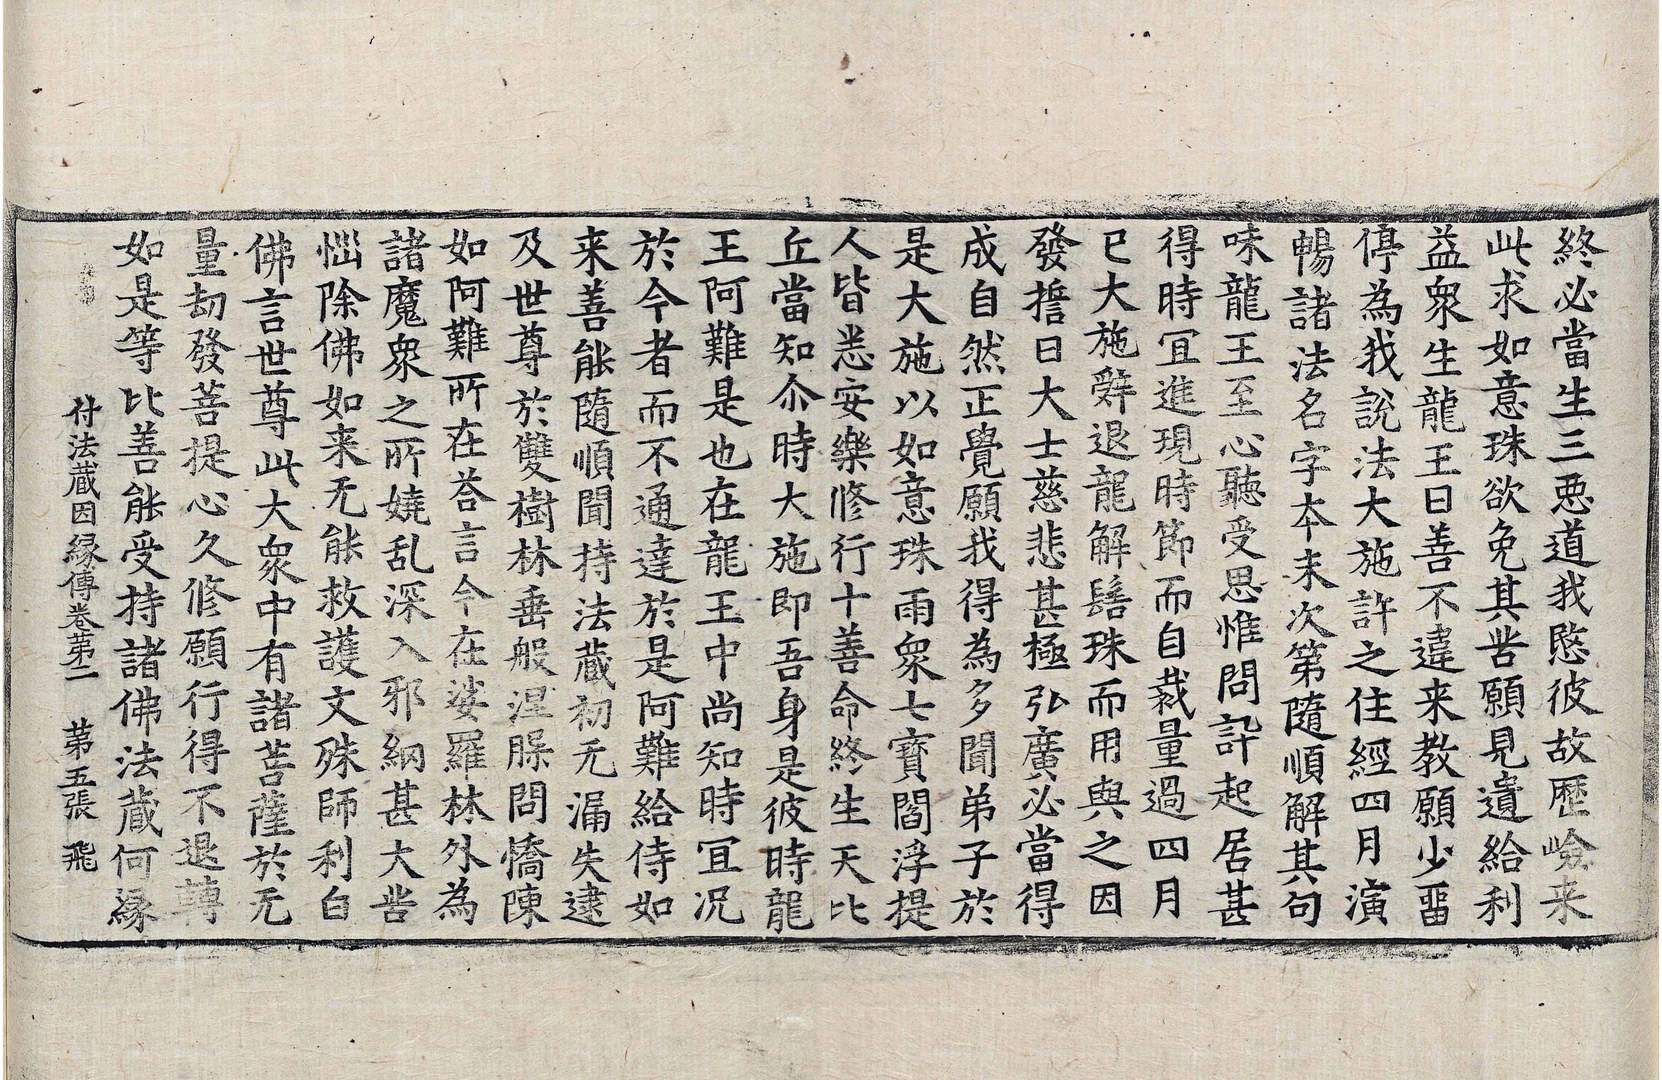 終必當生三惡道我愍彼故歷嶮来
此求如意珠欲免其苦願見遺給利
益衆生龍王曰善不違来教願少留
停為我說法大施許之住經四月演
暢諸法名字本末次第隨順解其句
味龍王至心聽受思惟問訊起居甚
得時宜進現時節而自裁量過四月
已大施辞退龍解髻珠而用與之因
發誓曰大士慈悲甚極弘廣必當得
成自然正覺願我得為多聞弟子於
是大施以如意珠雨衆七寶閻浮提
人皆悉安樂修行十善命終生天比
丘當知尒時大施即吾身是彼時龍
王阿難是也在龍王中尚知時冝况
於今者而不通達於是阿難給侍如
来善能隨順聞持法藏初无漏失逮
及世尊於雙樹林垂般涅槃問憍陳
如阿難所在荅言今在娑羅林外為
諸魔衆之所嬈乱深入邪網甚大苦
惱除佛如来无能救護文殊師利白
佛言世尊此大衆中有諸菩薩於无
量劫發菩提心久修願行得不退轉
如是等比善能受持諸佛法藏何縁
付法藏因縁傳卷苐二 苐五張 飛